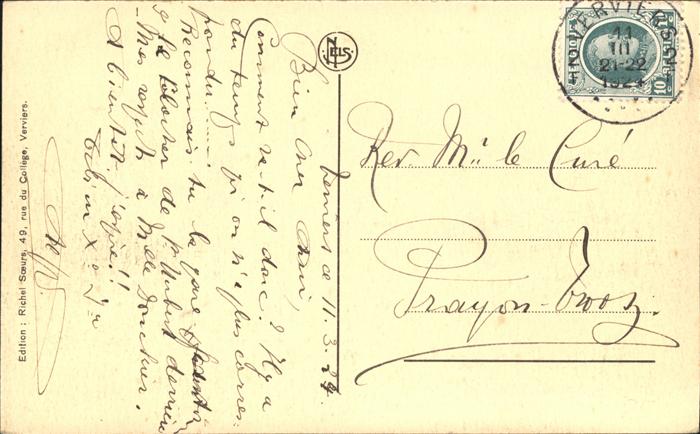 Verviers le 11.3.24
Bien cher Ami,
Comment va-t-il donc? Il y a
du temps qu'on n'a plus corres-
pondu.....
Reconnais tu la gare
& le clocher de St Hubert derrière
Mes respects à Melle
A bientôt j'espère!!
NELS
Edition : Richel Sœurs, 49, rue du Collège, Verviers.
VERVIERS
11
III
21-22
1924
BELGIQUE
10
Rev. Mr le Curé
Prayon-Trooz.